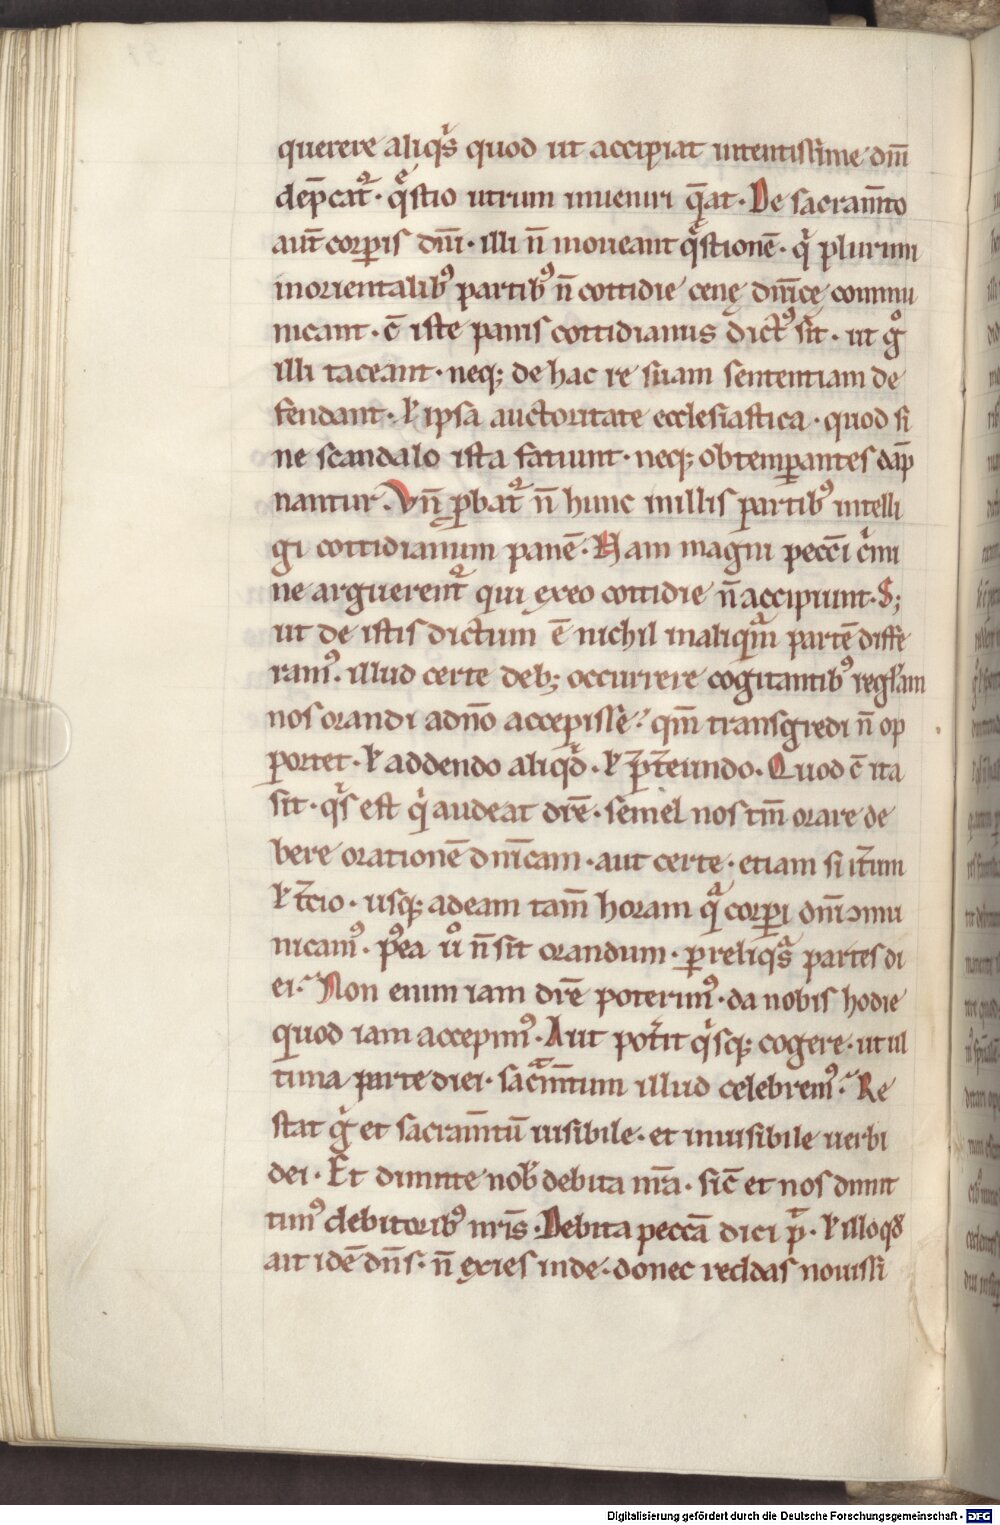 querere aliq̇s quod ut accipiat intentissime dn̄m
dep̄cat᷑. q̄stio utrum inueniri q̄at. De sacram̄to
aut̄ corꝑis dn̄i. illi n̄ moueant q̄stionē. q̇ plurimi
in orientalibꝰ partibꝰ n̄ cottidie cenę dn̄icę commu
nicant. c̄ iste panis cottidianus dictꝰ sit. ut g̊
illi taceant. neq; de hac re suam sententiam de
fendant. ł ipsa auctoritate ecclesiastica. quod si
ne scandalo ista fatiunt. neq; obtemꝑantes dāp
nantur. Vn̄ ꝓbat᷑ n̄ hunc in illis partibꝰ intelli
gi cottidianum panē. Nam magni pecc̄i c̄mi
ne arguerent᷑ qui ex eo cottidie n̄ accipiunt. S;
ut de istis dictum ē nichil in aliqᷓm partē diffe
ramꝰ. illud certe deb; occurrere cogitantibꝰ reglam
nos orandi a dn̄o accepisse. qm̄ transgredi n̄ op
portet. ł addendo aliqd̄. ł p̄t̄eundo. Quod c̄ ita
sit. q̇s est q̇ audeat dr̄e. semel nos tm̄ orare de
bere orationē dn̄icam. aut certe. etiam si it̄um
ł t̄cio. usq; ad eam tam̄ horam qᷓ corꝑi dn̄i ꝯmu
nicamꝰ. pꝰea ů n̄ sit orandum. ꝑ reliqᷓs partes di
ei. Non enim iam dr̄e poterimꝰ. da nobis hodie
quod iam accepimꝰ. Aut pot̄it q̇sq; cogere. ut ul
tima parte diei. sac̄m̄tum illud celebremꝰ. Re
stat ġ et sacram̄tū uisibile. et inuisibile uerbi
dei. Et dimitte nob̄ debita nr̄a. sic̄ et nos dimit
timꝰ debitoribꝰ nr̄is. Debita peccā dici pᷓ. ł illo qd̄
ait idē dn̄s. n̄ exies inde. donec reddas nouissi
Digitalisierung gefördert durch die Deutsche Forschungsgemeinschaft - DFG